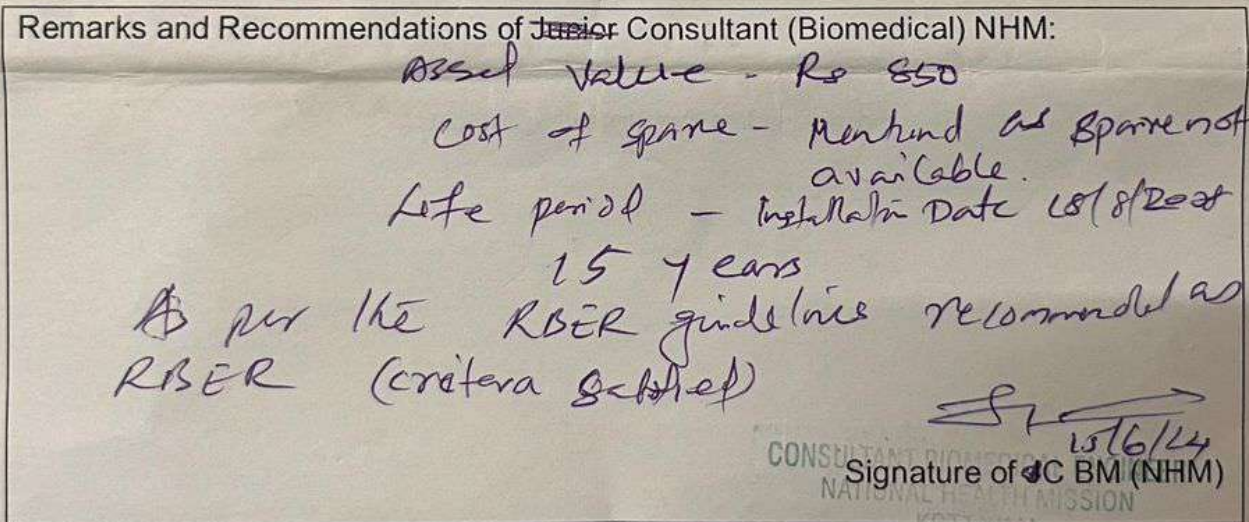 Remarks and Recommendations of Junior Consultant (Biomedical) NHM:
Asset Value - Rs 850
Cost of spare - Mentiond as spare not
available.
Life period - Installatin Date 18/8/
15 years
As per the RBER guidelines recommended as
RBER (critera satisfied)
15/6/24
CONSULTANT BIOMEDICAL
Signature of JC BM (NHM)
NATIONAL HEALTH MISSION